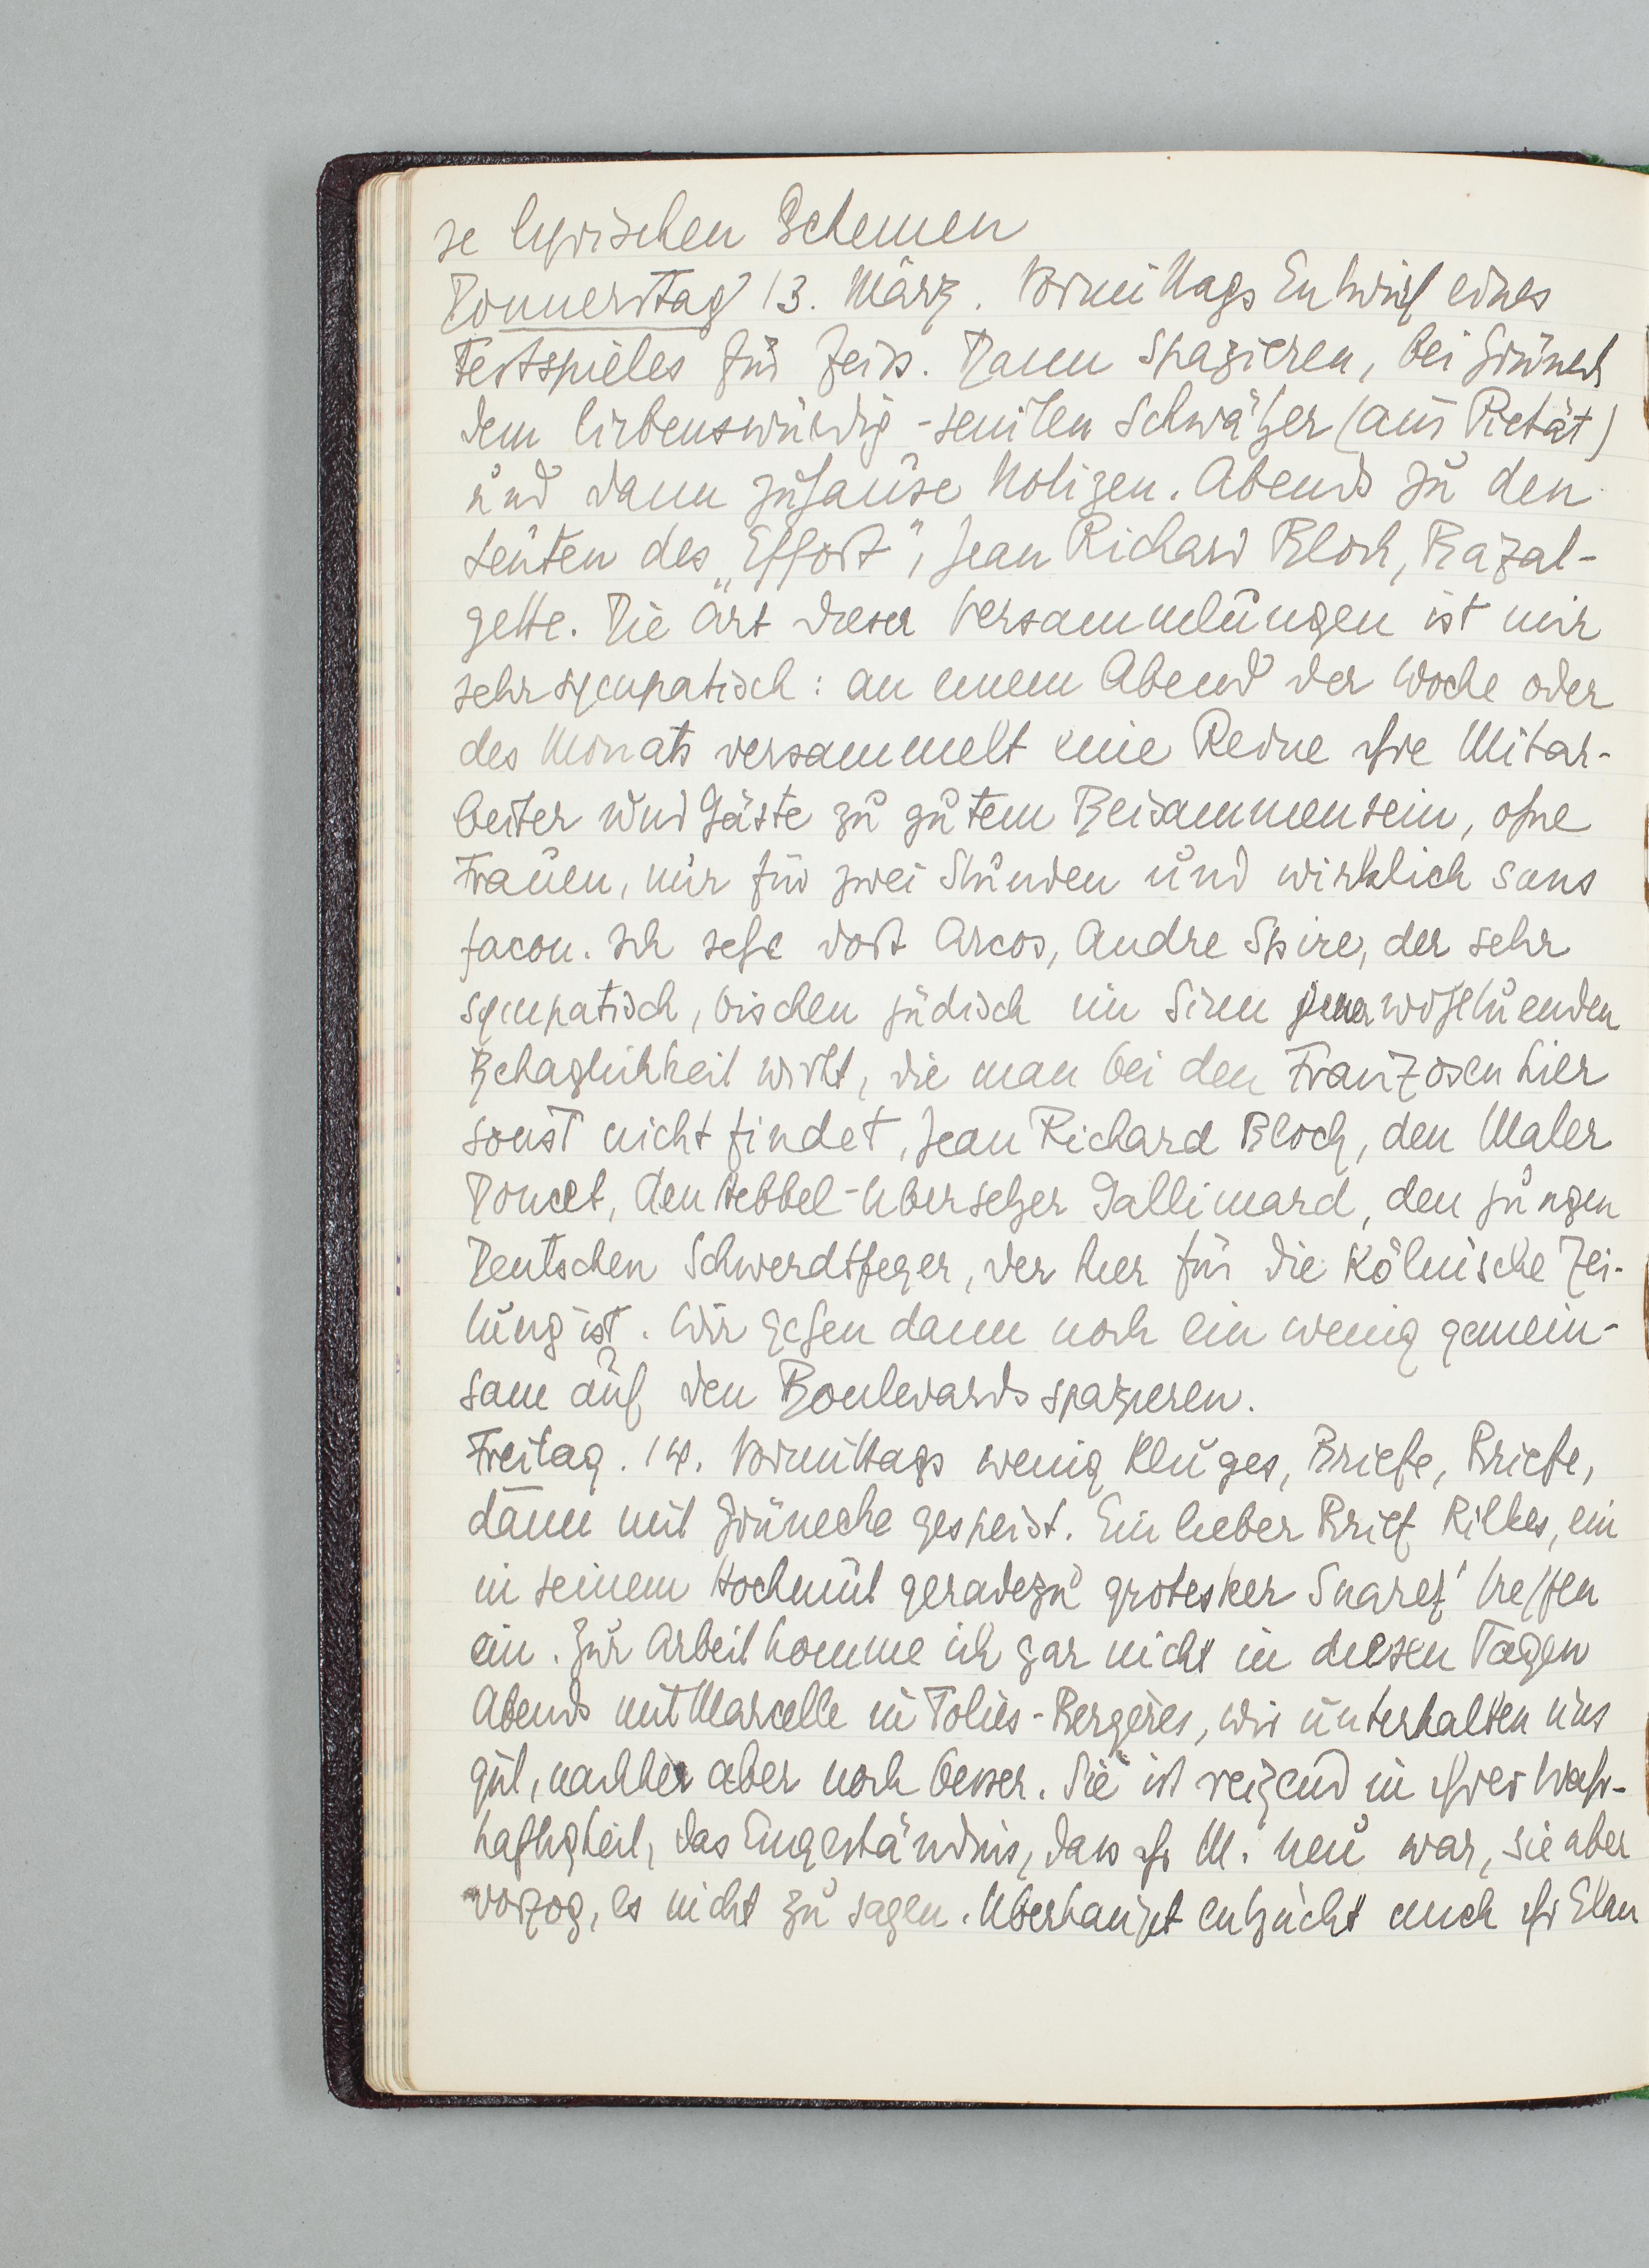 se lyrischen Schemen
Donnerstag 13. März. Vormittags Entwurf eines
Festspieles für Zeiss. Dann spazieren, bei
dem liebenswürdig-senilen Schwätzer (aus Pietät)
und dann zuhause Notizen. Abends zu den
Leuten des „Effort“, Jean Richard Bloch, Bazal-
gette. Die Art dieser Versammlungen ist mir
sehr sympatisch: an einem Abend der Woche oder
des Monats versammelt eine Revue ihre Mitar-
beiter und Gäste zu gutem Beisammensein, ohne
Frauen, nur für zwei Stunden und wirklich sans
facon. Ich sehe dort Arcos, Andre Spire, der sehr
sympatisch, bischen jüdisch im Sinne jener wohltuenden
Behaglichkeit wirkt, die man bei den Franzosen hier
sonst nicht findet, Jean Richard Bloch, den Maler
Doucet, den Hebbel-Übersetzer Gallimard, den jungen
Deutschen Schwerdtfeger, der hier für die Kölnische Zei-
tung ist. Wir gehen dann noch ein wenig gemein-
sam auf den Boulevards spazieren.
Freitag. 14. Vormittags wenig Kluges, Briefe, Briefe,
dann mit gespeist. Ein lieber Brief Rilkes, ein
in seinem Hochmut geradezu grotesker Suarez' treffen
ein. Zur Arbeit komme ich gar nicht in diesen Tagen
Abends mit Marcelle in Folies-Bergères, wir unterhalten uns
gut, nachher aber noch besser. Sie ist reizend in ihrer Wahr-
haftigkeit, das Eingeständnis, dass ihr M. neu war, sie aber
vorzog, es nicht zu sagen. Überhaupt entzückt auch ihr Elan